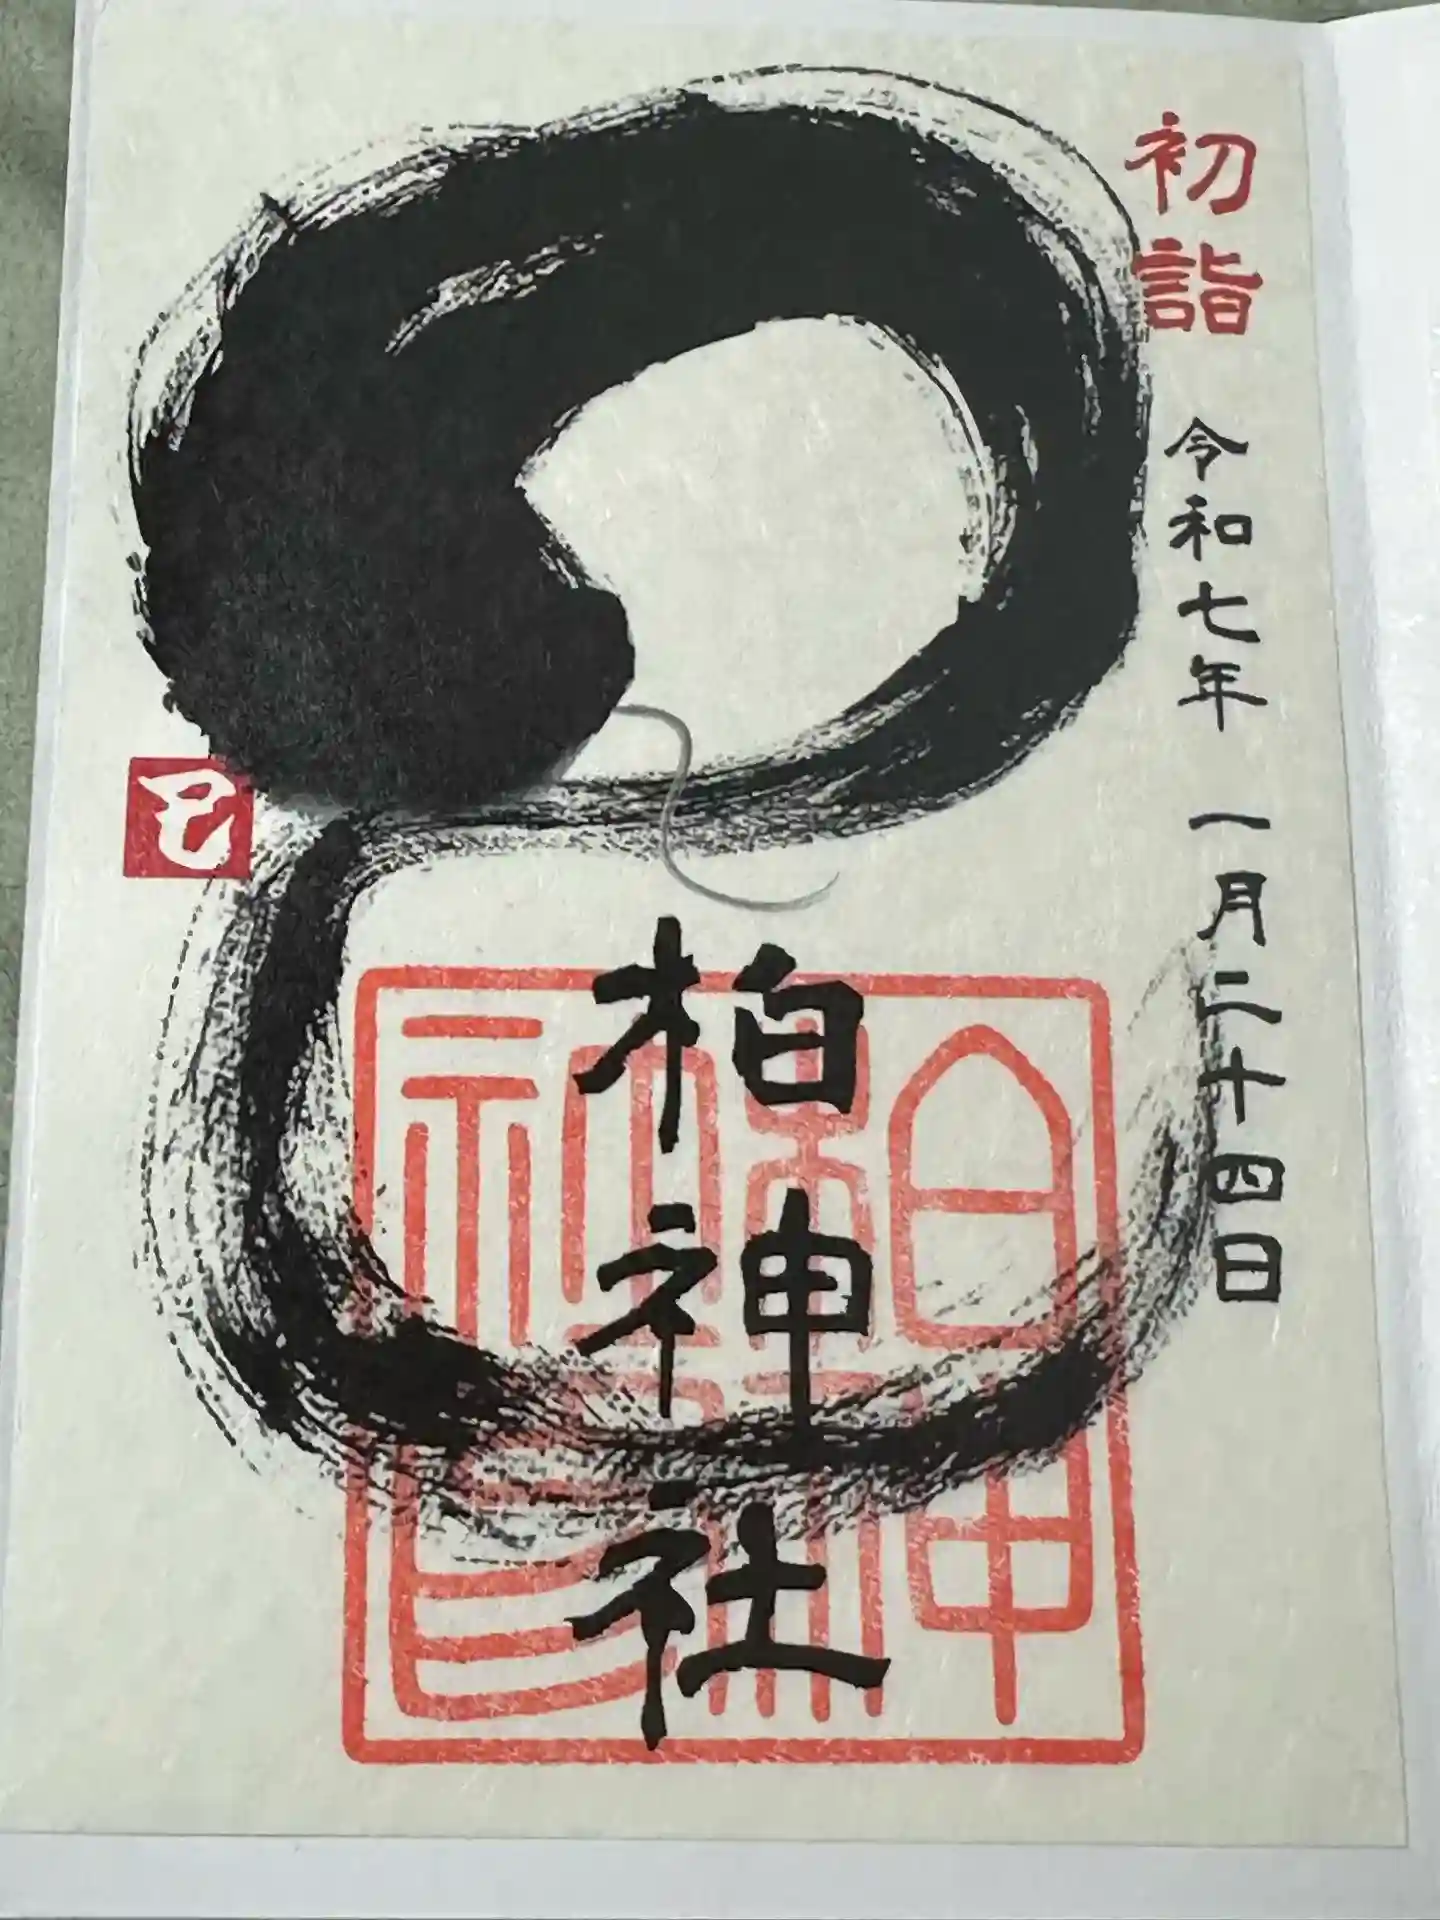 初詣
令和七年 一月二十四日
柏神社
巳
柏神社印